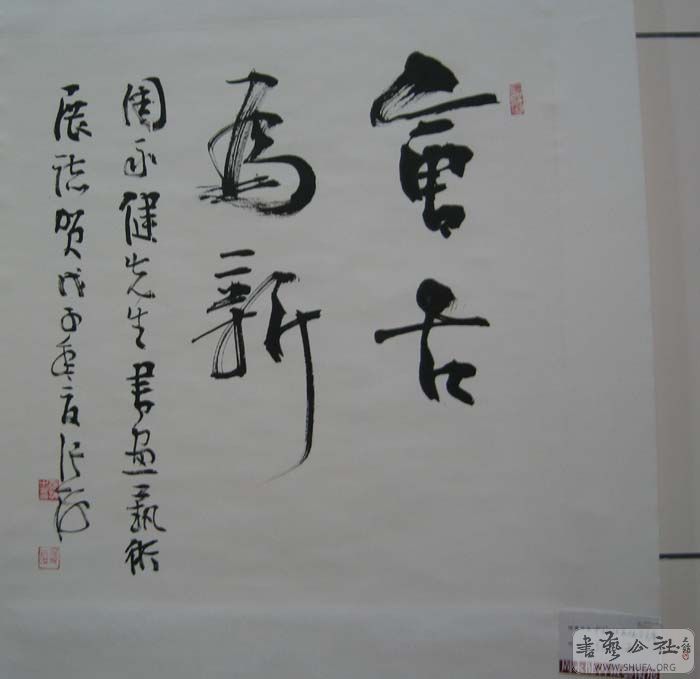 會古
為新
周永健先生書畫藝術
展誌賀戊子
書藝公社
WWW.SHUFA.ORG